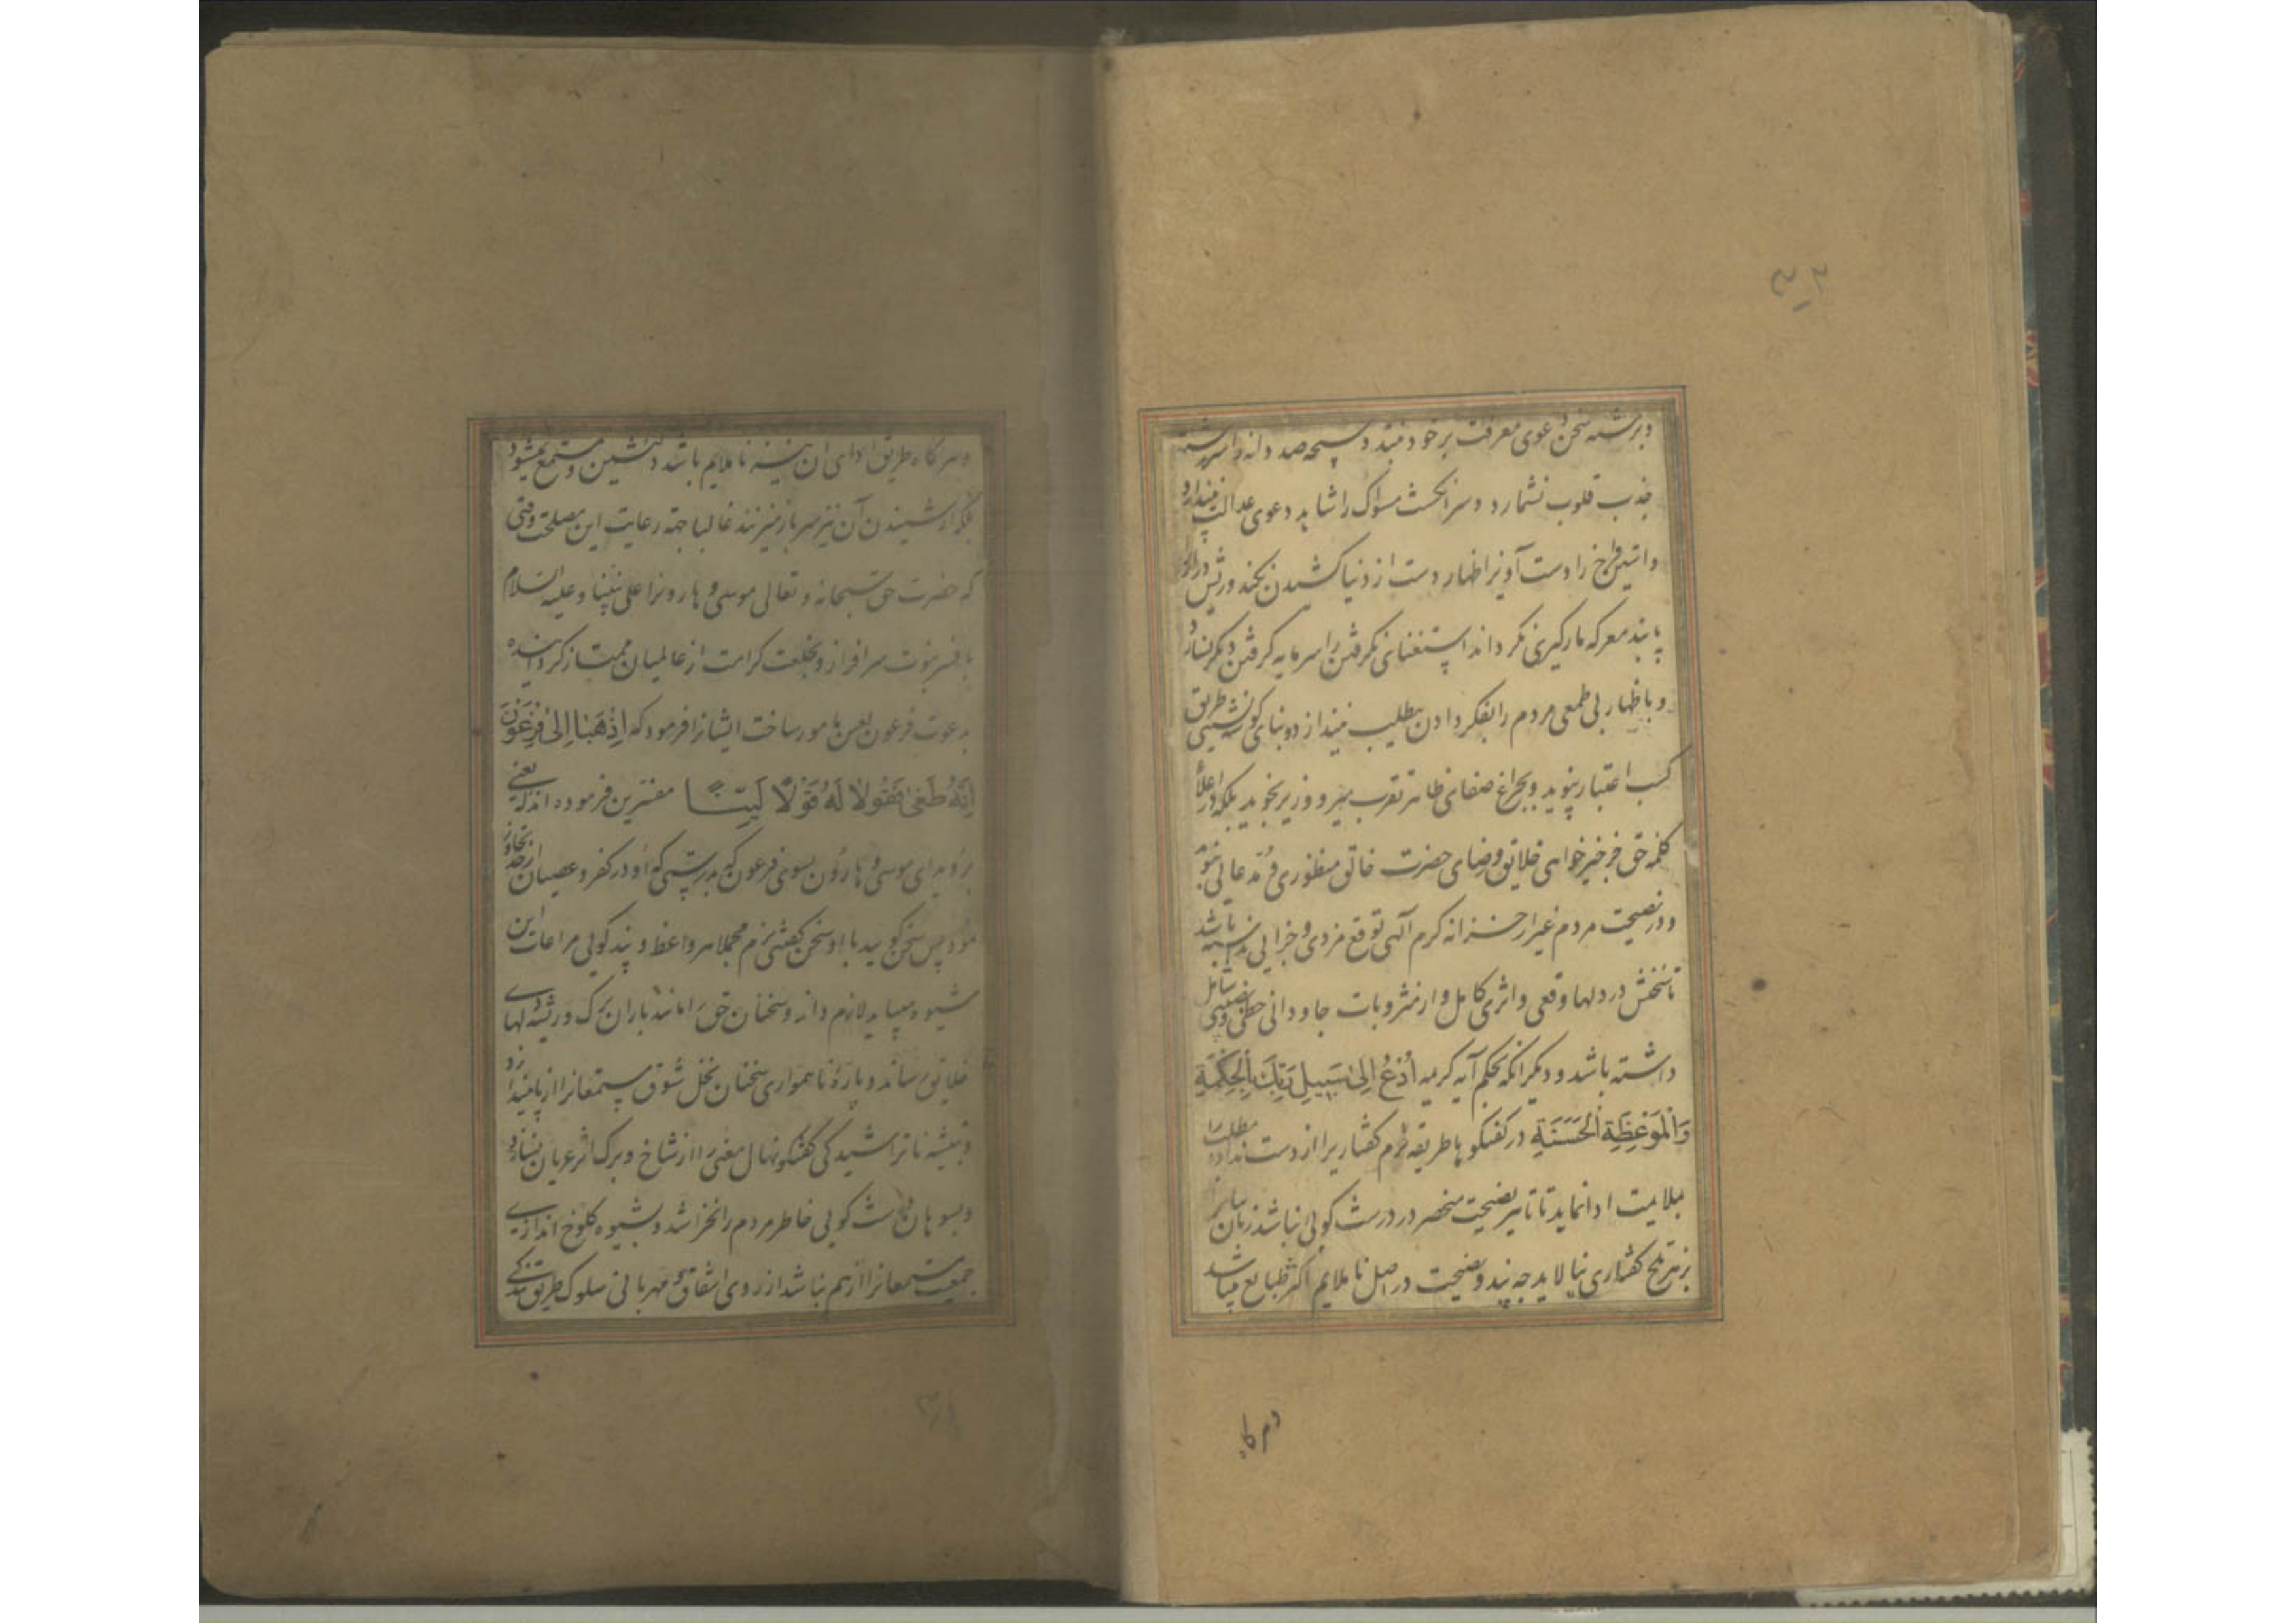 و برشته سخن دعوی معرفت برخود نبندد و سبحه صد دانه را سررشته
جذب قلوب نشمارد و سر انگشت مسواک را شاهد دعوی عدالت نپندارد
و آستین فراخ را دست آویز اظهار دست از دنیا کشیدن نکند و ریش دراز را
پابند معرکه مارگیری نگرداند استغنای نگرفتن را سرمایه گرفتن دیگر نسازد
و باظهار بی طمعی مردم را بفکر دادن مطلب نیندازد و بنای گوشه نشینی طریق
کسب اعتبار نپوید و بچراغ صفای ظاهر تقرب میر و وزیر نجوید بلکه در اعلای
کلمه حق جز خیرخواهی خلایق و رضای حضرت خالق منظوری و مدعائی نبود
و در نصیحت مردم غیر از خزانه کرم الهی توقع مزدی و جزایی نداشته باشد
تا سخنش در دلها وقعی و اثری کامل و از مثوبات جاودانی حظی و نصیبی شامل
داشته باشد و دیگر آنکه بحکم آیه کریمه اُدْعُ اِلىٰ سَبِیلِ رَبِّكَ بِالْحِكْمَةِ
وَالْمَوْعِظَةِ الْحَسَنَةِ در گفتگوها طریقه نرم گفتاری را از دست نداده مطلب را
بملایمت ادا نماید تا تاثیر نصیحت منحصر در درشت گویی نباشد زبان را
بزهر تلخ گفتاری نیالاید چه پند و نصیحت در اصل ناملایم اکثر طبایع میباشد
و هرگاه
و هرگاه طریق ادای آن نیز ناملایم باشد دلنشین مستمع نمیشود
بلکه از شنیدن آن نیز سر باز میزنند غالبا جهة رعایت این مصلحت وقتی
که حضرت حق سبحانه و تعالی موسی و هارون را علی نبینا و علیه السلام
بافسر نبوت سرافراز و بخلعت کرامت از عالمیان ممتاز گردانیده
بدعوت فرعون لعین مامور ساخت ایشانرا فرمود که اِذْهَبَا اِلىٰ فِرْعَوْنَ
اِنَّهُ طَغىٰ فَقُولَا لَهُ قَوْلًا لَيِّنًا مفسرین فرموده اند که یعنی
بروید ای موسی و هارون بسوی فرعون که بدرستی که او در کفر و عصیان از حد تجاوز
نمود پس سخن گویید با او سخن گفتنی نرم مجملا هر واعظ و پند گویی مراعات این
شیوه میباید لازم داند و سخنان حق را مانند باران برگ و ریشه دلهای
خلایق رساند و باره ناهمواری سخنان نخل شوق مستمعانرا از پا نیندازد
و بتیشه ناتراشیدگی گفتگو نهال معنی را از شاخ و برگ اثر عریان نسازد
و بسوهان درشت گویی خاطر مردم را نخراشد و بشیوه کلوخ اندازی
جمعیت مستمعانرا از هم نپاشد از روی اشفاق و مهربانی سلوک طریق